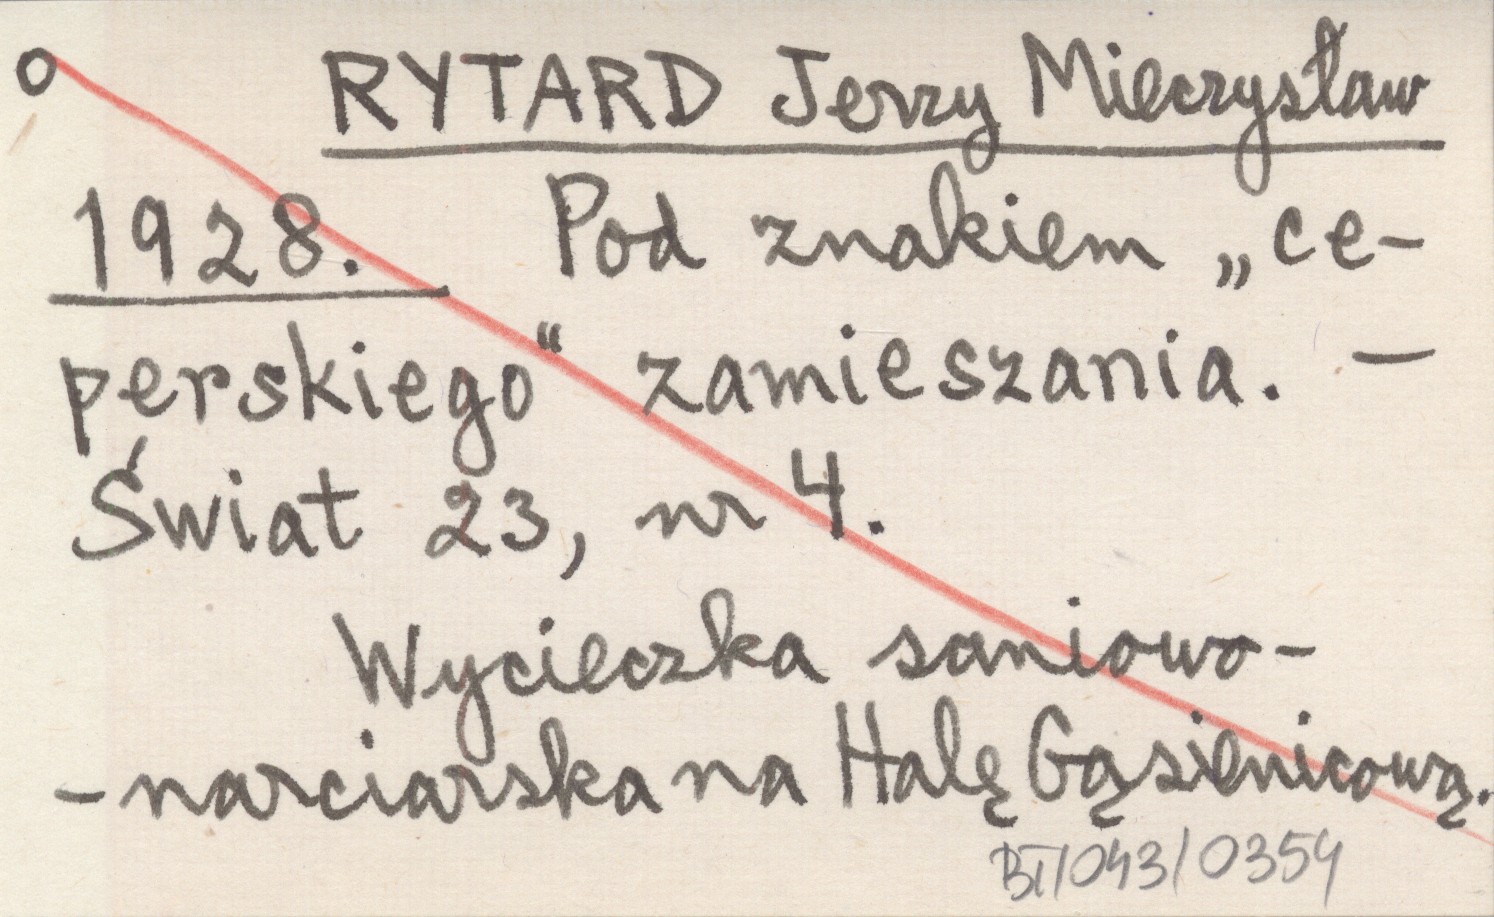 o RYTARD Jerzy Mieczysław
1928. Pod znakiem „ce-
perskiego“ zamieszania. —
Świat 23, nr 4.
Wycieczka saniowo-
-narciarska na Halę Gąsienicową.
BT/043/0354